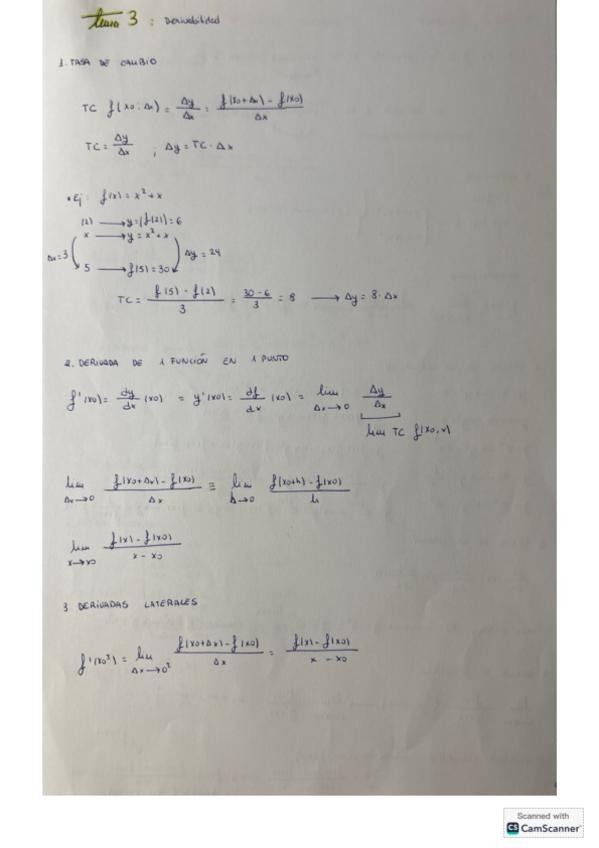 Tema 3 : Derivabilidad
1. TASA DE CAMBIO
TC f(x0; Δx) = Δy/Δx = f(x0+Δx) - f(x0)/Δx
TC = Δy/Δx ; Δy = TC · Δx
• Ej: f(x) = x² + x
(2) → y = (f(2)) = 6
x → y = x² + x
Δx = 3 Δy = 24
5 → f(5) = 30
TC = f(5) - f(2)/3 = 30 - 6/3 = 8 → Δy = 8 · Δx
2. DERIVADA DE 1 FUNCIÓN EN 1 PUNTO
f'(x0) = dy/dx (x0) = y'(x0) = df/dx (x0) = lim Δx→0 Δy/Δx
lim TC f(x0, x)
lim Δx→0 f(x0+Δx) - f(x0)/Δx ≡ lim h→0 f(x0+h) - f(x0)/h
lim x→x0 f(x) - f(x0)/x - x0
3. DERIVADAS LATERALES
f'(x0²) = lim Δx→0² f(x0+Δx) - f(x0)/Δx = f(x) - f(x0)/x - x0
Scanned with
CS CamScanner